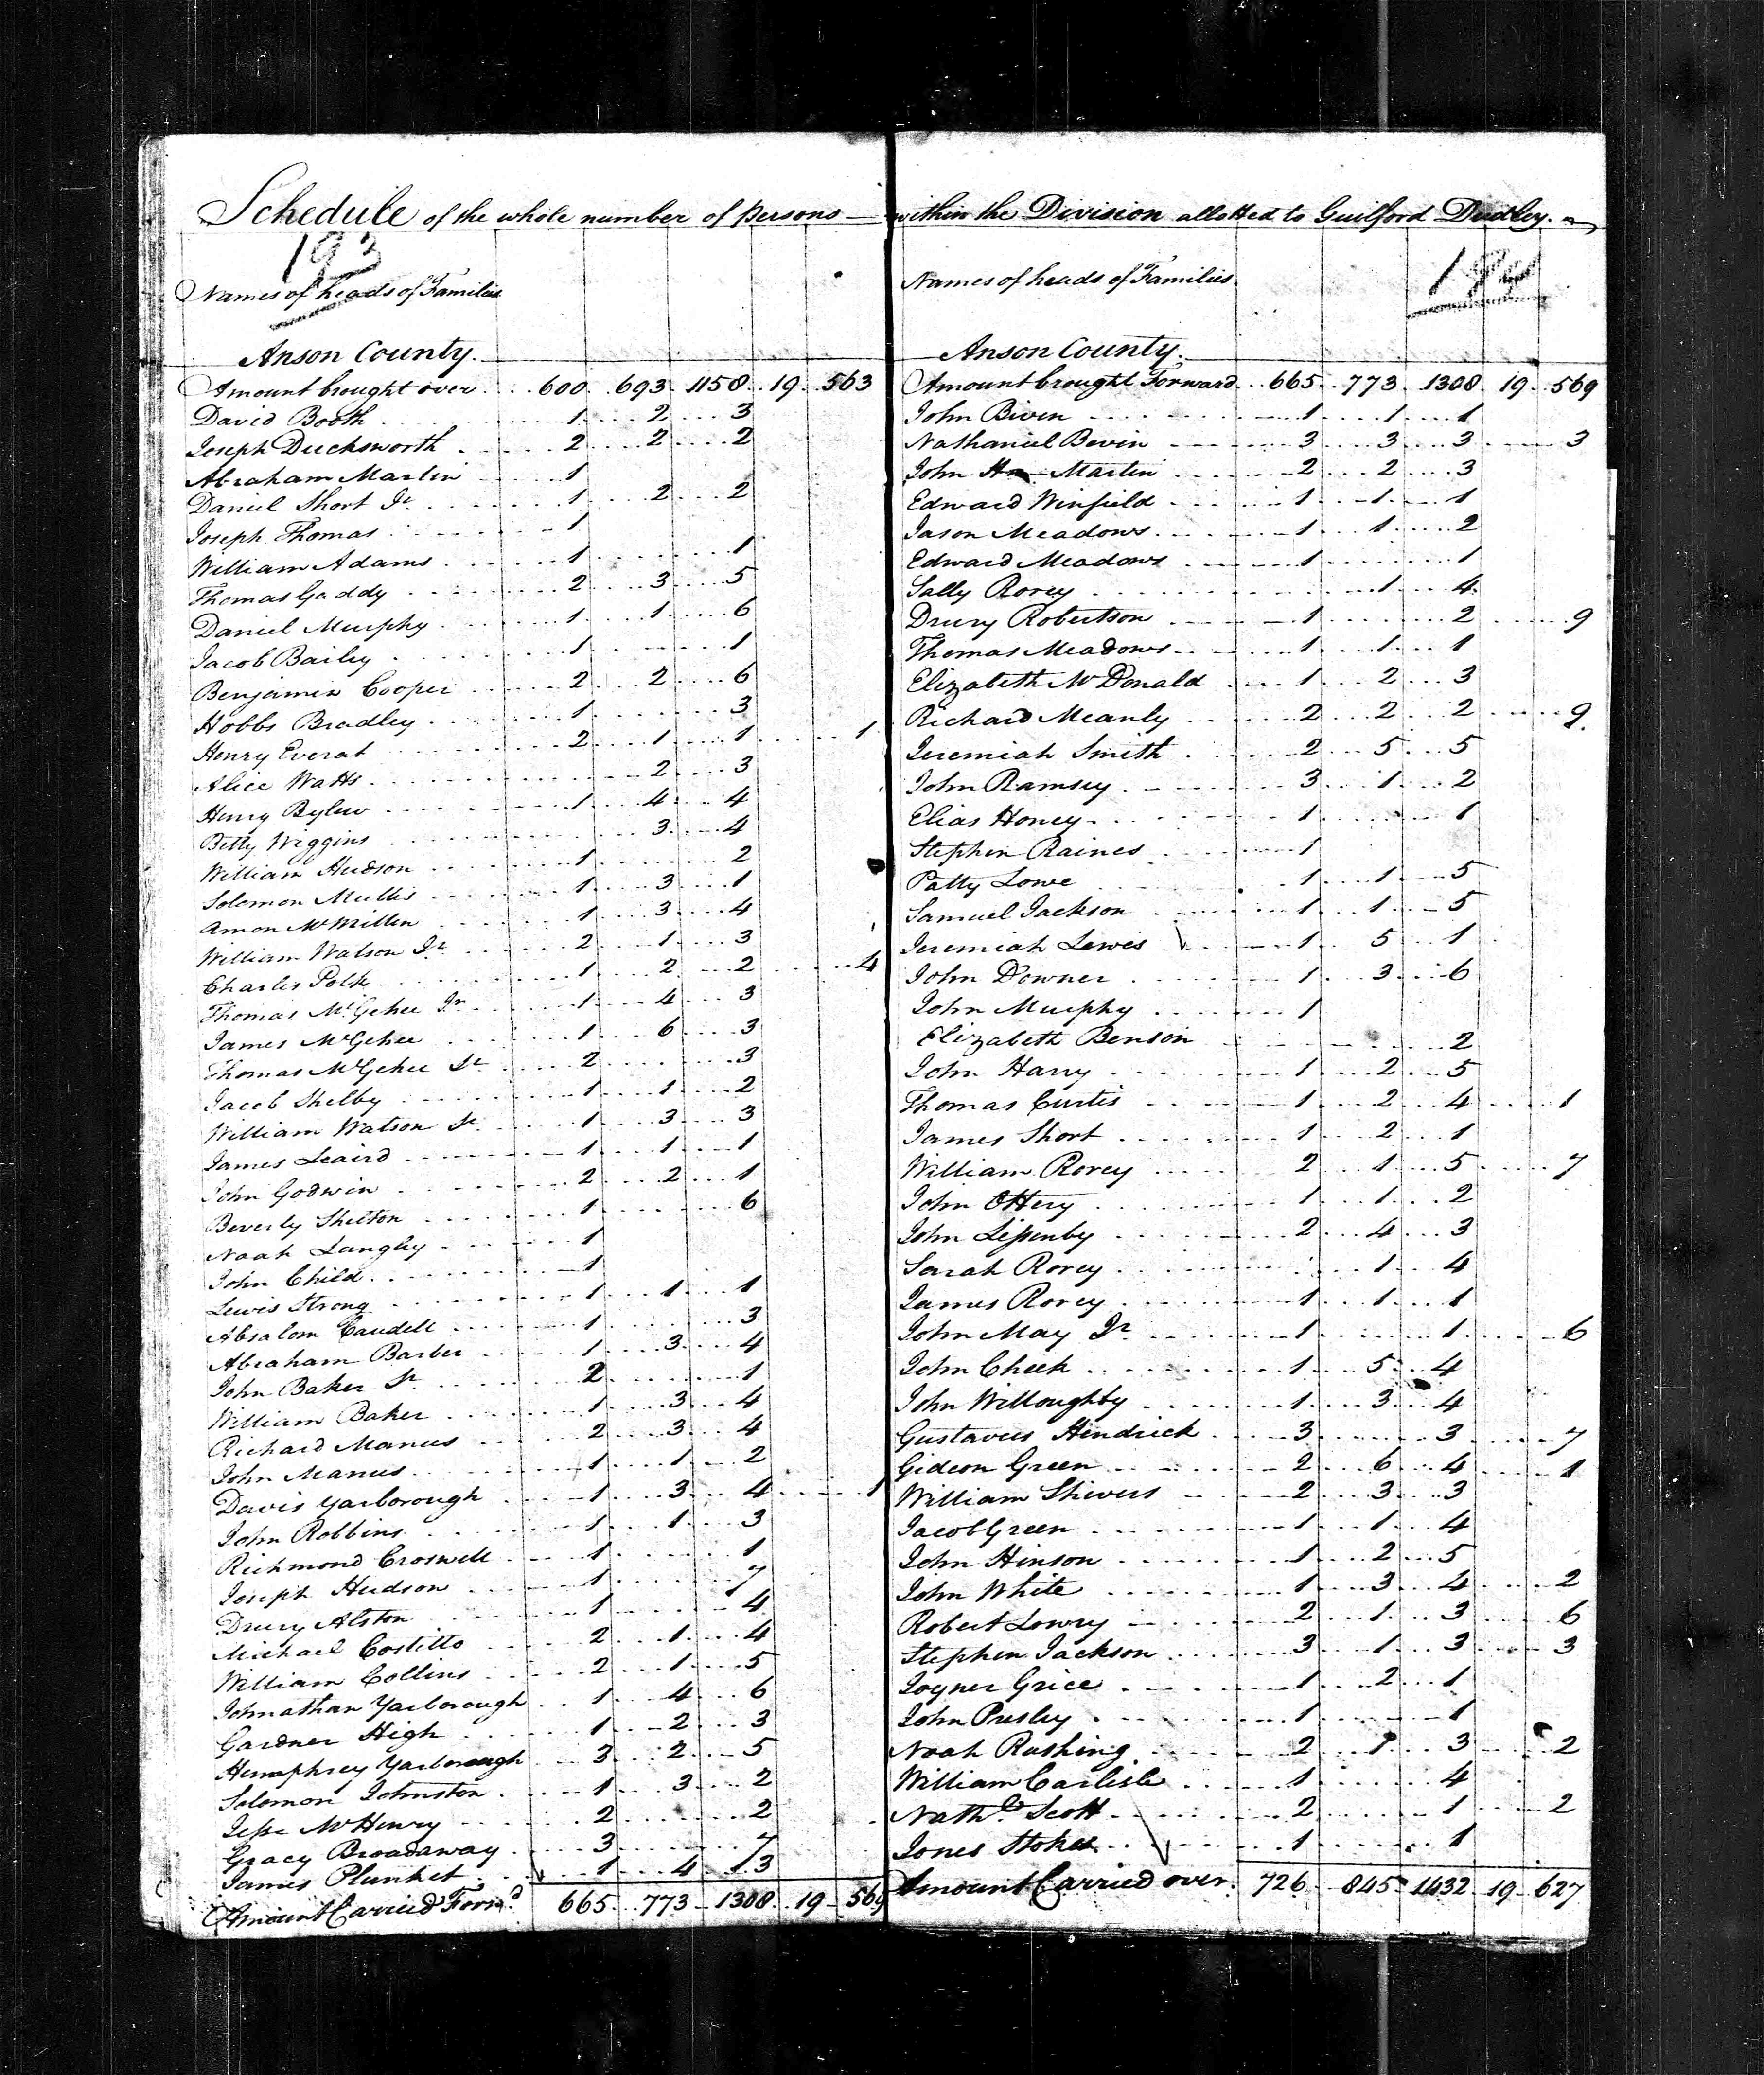 Schedule of the whole number of persons — within the Division allotted to Guilford Dudley.
193
Names of heads of Families
Anson County.
Amount brought over 600 693 1158 19 563
David Booth 1 2 3
Joseph Ducksworth 2 2 2
Abraham Martin 1
Daniel Short Jr 1 2 2
Joseph Thomas 1
William Adams 1 1
Thomas Gaddy 2 3 5
Daniel Murphy 1 1 6
Jacob Bailey 1 1
Benjamin Cooper 2 2 6
Hobbs Bradley 1 3
Henry Everat 2 1 1 1
Alice Watts 2 3
Henry Bylew 1 4 4
Betty Wiggins 3 4
William Hudson 1 2
Solomon Mullis 1 3 1
Amon McMillen 1 3 4
William Watson Jr 2 1 3
Charles Polk 1 2 2 4
Thomas McGehee Jr 1 4 3
James McGehee 1 6 3
Thomas McGehee Sr 2 3
Jacob Shelby 1 1 2
William Watson Sr 1 3 3
James Leaird 1 1 1
John Godwin 2 2 1
Beverly Shelton 1 6
Noah Langley 1
John Child 1
Lewis Strong 1 1 1
Absalom Caudell 1 3
Abraham Barber 1 3 4
John Baker Sr 2 1
William Baker 1 3 4
Richard Manus 2 3 4
John Manus 1 1 2
Davis Yarborough 1 3 4 1
John Robbins 1 1 3
Richmond Croswell 1 1
Joseph Hudson 1 7
Drury Alston 1 4
Michael Costillo 2 1 4
William Collins 2 1 5
Johnathan Yarborough 1 4 6
Gardner High 1 2 3
Humphrey Yarborough 3 2 5
Solomon Johnston 1 3 2
Jesse McHenry 2 2
Gracy Broadaway 3 7
James Plunket 1 4 3
Amount Carried Forwd 665 773 1308 19 569
194
Names of heads of Families.
Anson County.
Amount brought Forward 665 773 1308 19 569
John Biven 1 1 1
Nathaniel Bevin 3 3 3 3
John Martin 2 2 3
Edward Winfield 1 1 1
Jason Meadows 1 1 2
Edward Meadows 1 1
Sally Rorey 1 4
Drury Robertson 1 2 9
Thomas Meadows 1 1 1
Elizabeth McDonald 1 2 3
Richard Meanly 2 2 2 9
Jeremiah Smith 2 5 5
John Ramsey 3 1 2
Elias Honey 1 1
Stephen Raines 1
Patty Lowe 1 1 5
Samuel Jackson 1 1 5
Jeremiah Lewis 1 5 1
John Downer 1 3 6
John Murphy 1
Elizabeth Benson 2
John Harry 1 2 5
Thomas Curtis 1 2 4 1
James Short 1 2 1
William Rorey 2 1 5 7
John Ottery 1 1 2
John Lissenby 2 4 3
Sarah Rorey 1 4
James Rorey 1 1 1
John May Jr 1 1 6
John Cheek 1 5 4
John Willoughby 1 3 4
Gustavus Hendrick 3 3 7
Gideon Green 2 6 4 1
William Shivers 2 3 3
Jacob Green 1 1 4
John Hinson 1 2 5
John White 1 3 4 2
Robert Lowry 2 1 3 6
Stephen Jackson 3 1 3 3
Joyner Grice 1 2 1
John Presley 1 1
Noah Rushing 2 1 3 2
William Carlisle 1 4
Nathl. Scott 2 1 2
Jones Stokes 1 1
Amount Carried over 726 845 1432 19 627